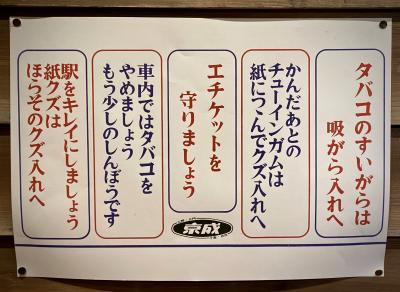 タバコのすいがらは
吸がら入れへ
かんだあとの
チューインガムは
紙につゝんでクズ入れへ
エチケットを
守りましょう
車内ではタバコを
やめましょう
もう少しのしんぼうです
駅をキレイにしましょう
紙クズは
ほらそのクズ入れへ
京成